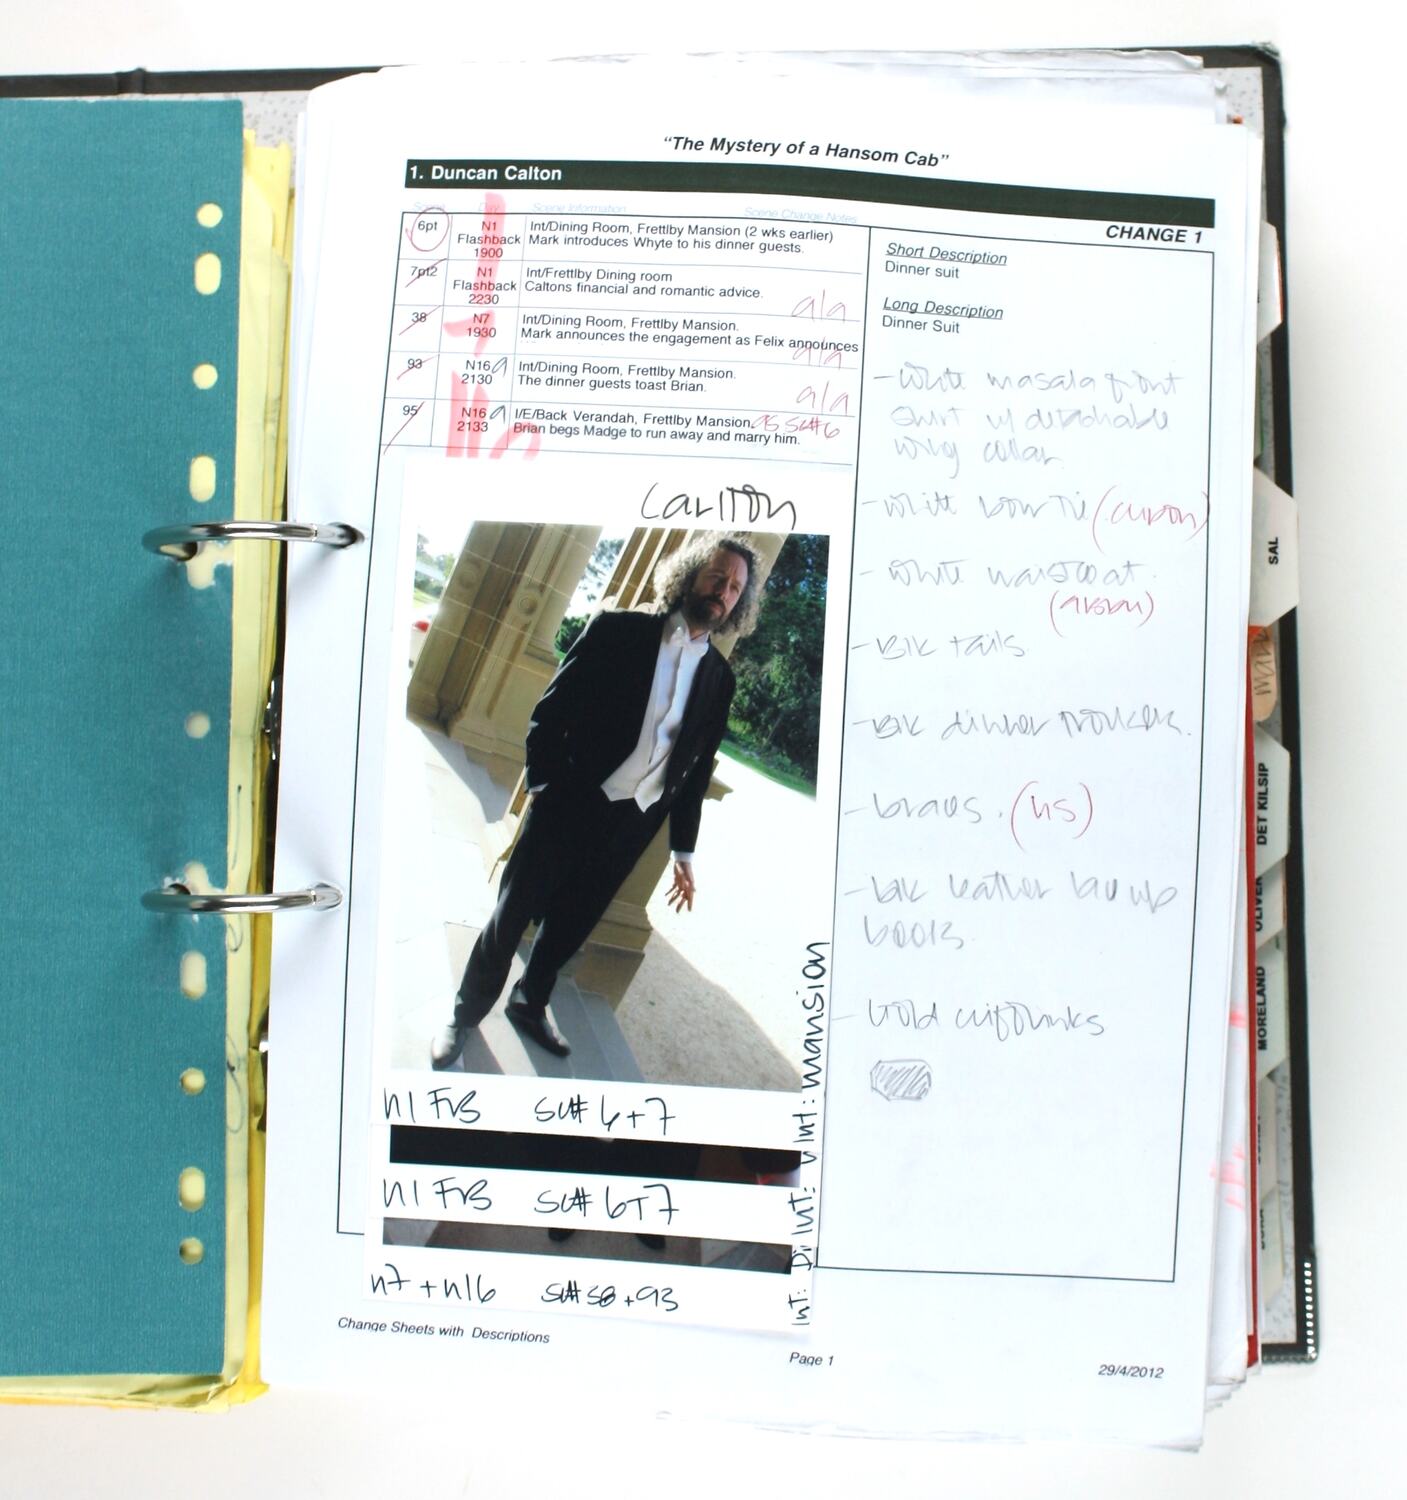 “The Mystery of a Hansom Cab”
1. Duncan Calton
CHANGE 1
Scene Day Scene Information Scene Change Notes
6pt
N1
Flashback
1900
Int/Dining Room, Frettlby Mansion (2 wks earlier)
Mark introduces Whyte to his dinner guests.
7pt2
N1
Flashback
2230
Int/Frettlby Dining room
Caltons financial and romantic advice.
a/a
38
N7
1930
Int/Dining Room, Frettlby Mansion.
Mark announces the engagement as Felix announces
a/a
93
N16 a
2130
Int/Dining Room, Frettlby Mansion.
The dinner guests toast Brian.
a/a
95
N16 a
2133
I/E/Back Verandah, Frettlby Mansion. as sc#6
Brian begs Madge to run away and marry him.
Short Description
Dinner suit
Long Description
Dinner Suit
- White masala front
shirt w/ detachable
wing collar
- white bow tie
- white waistcoat.
- Blk tails
- Blk dinner trousers.
- braces. (ns)
- blk leather lace up
boots.
- Gold cufflinks
Carlton
n1 FB sc# 6+7
n1 FB sc# 6+7
n7 + n16 sc# 38 + 93
Int: mansion
Int:
Int:
Change Sheets with Descriptions
Page 1
29/4/2012
SAL
Mark
DET KILSIP
OLIVER
MORELAND